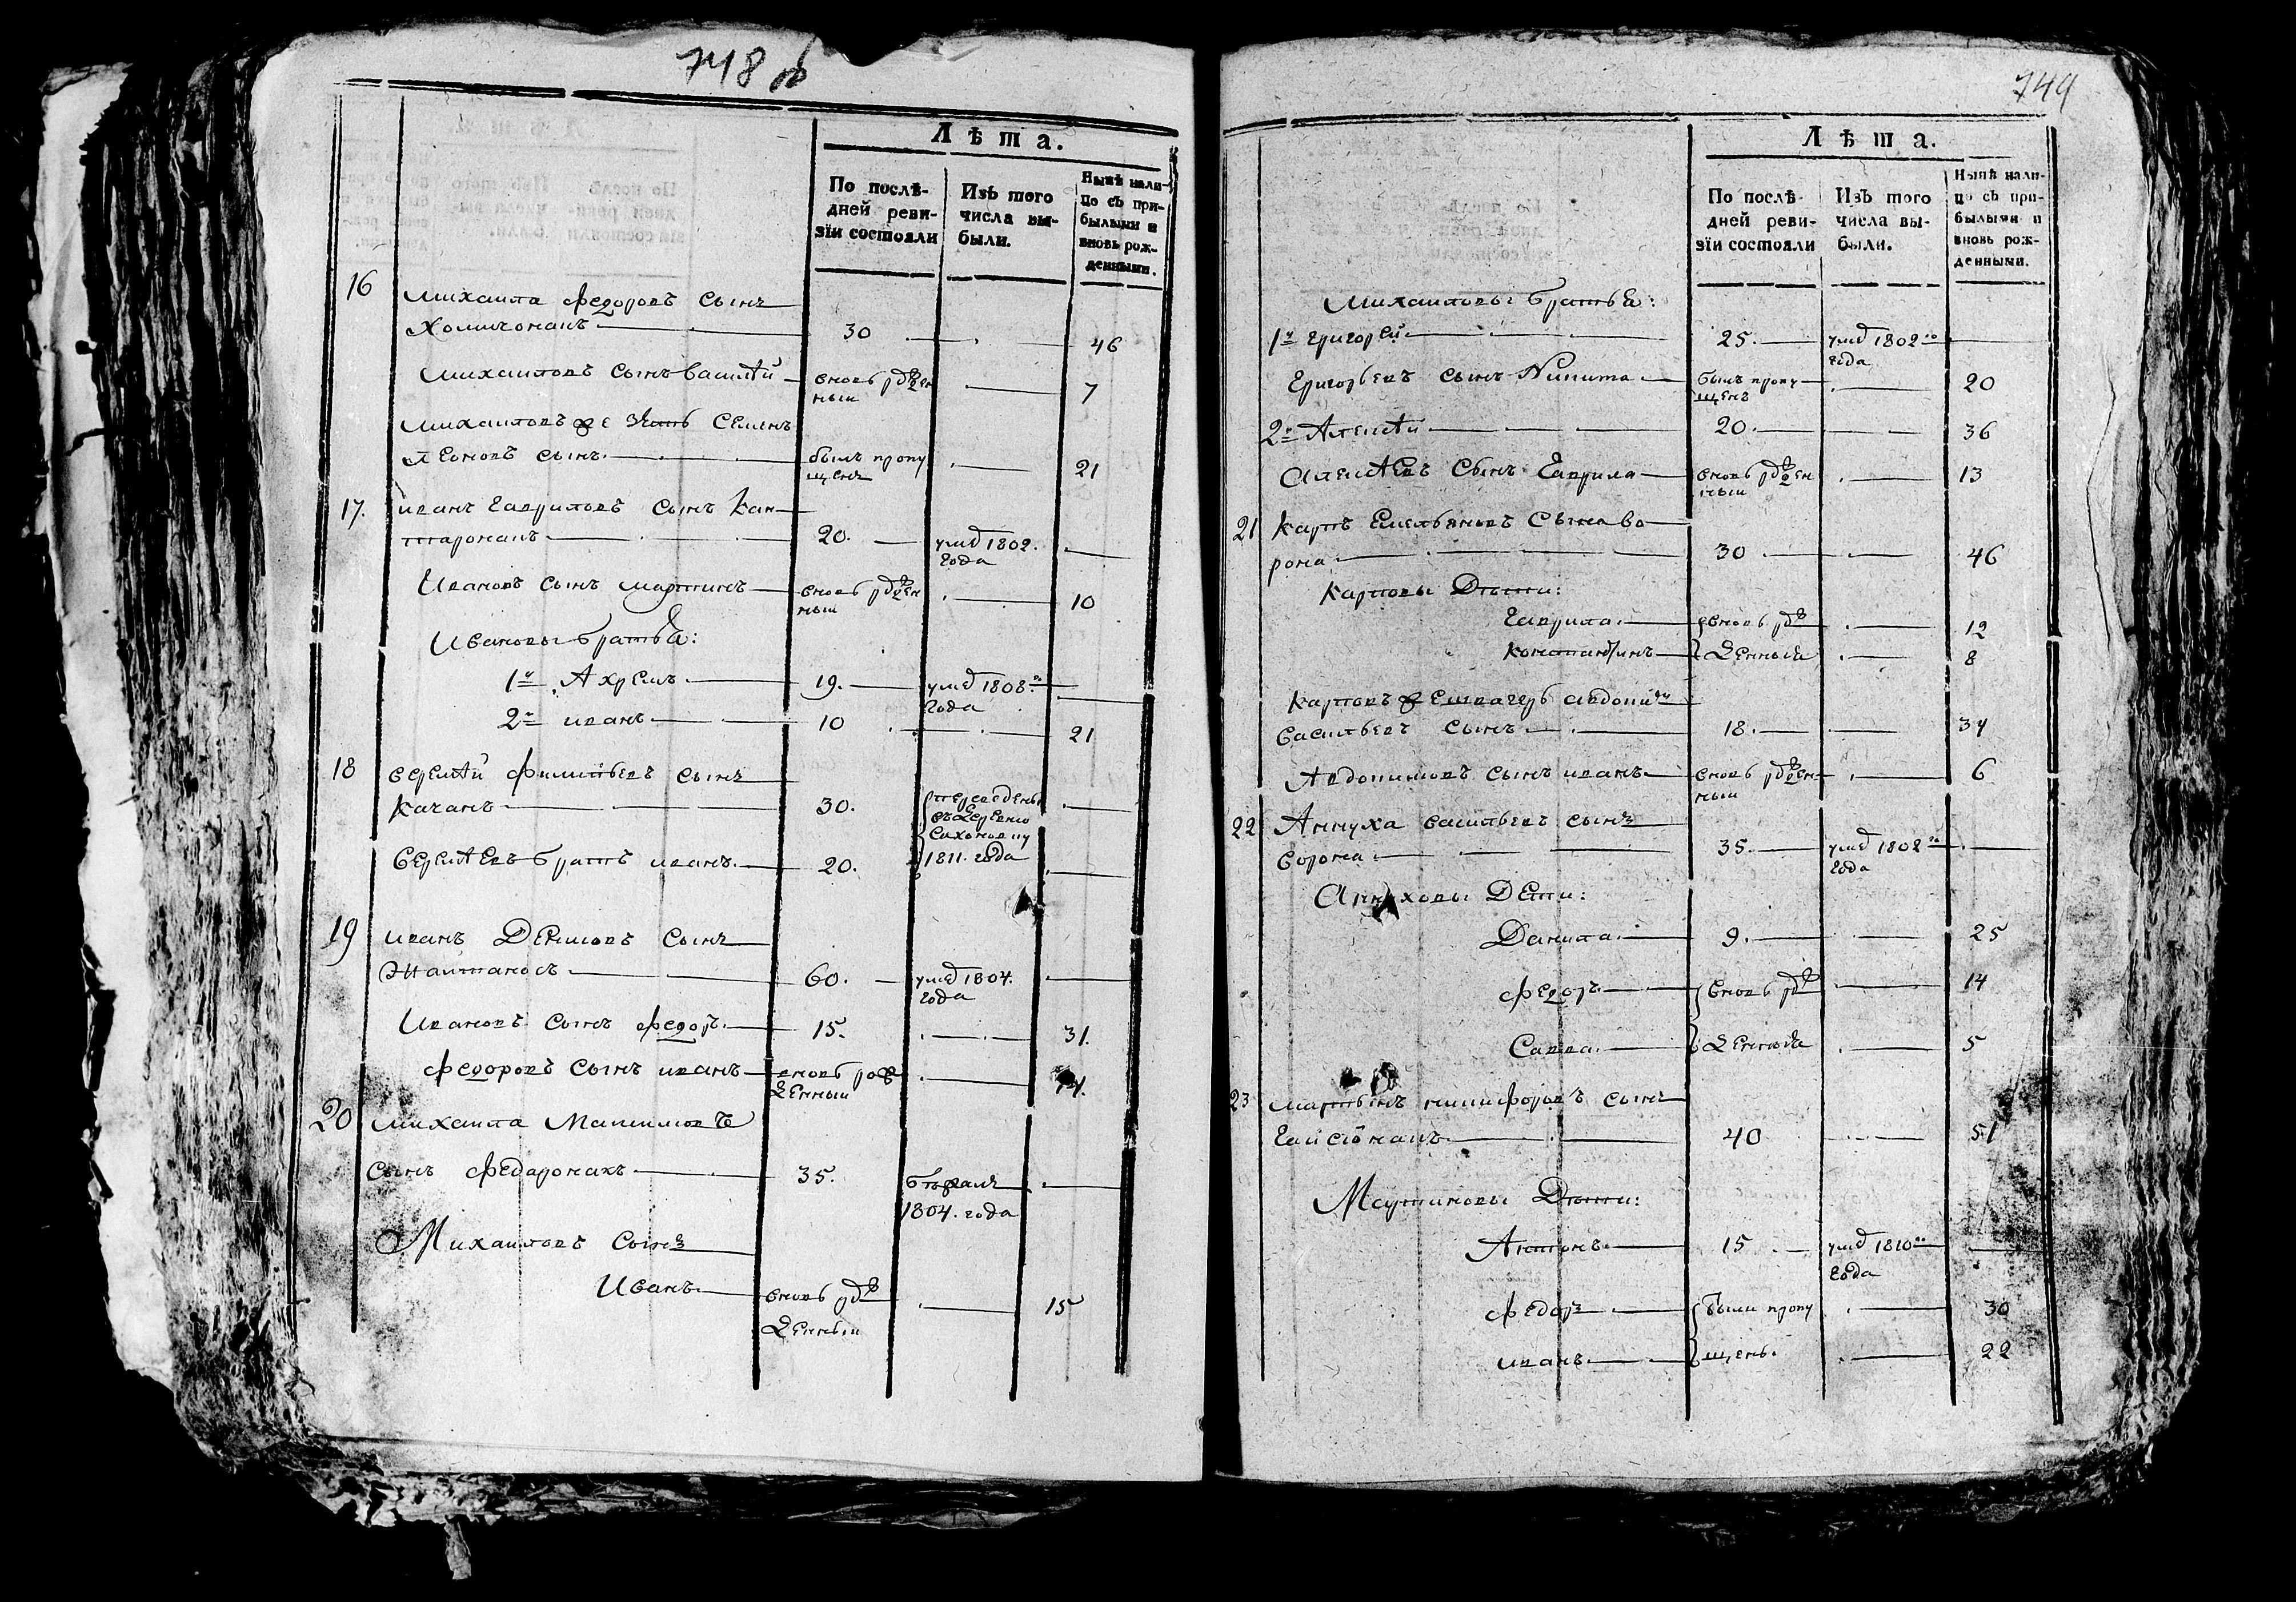 748 об
Лѣта.
По послѣ-
дней реви-
зїи состояли
Изъ того
числа вы-
были.
Нынѣ нали-
цо съ при-
былыми и
вновь рож-
денными.
16 Михаила Федоровъ сынъ
Хомичонакъ 30 46
Михаиловъ сынъ Василѣй вновь рожден 7
ный
Михаиловъ же зять Семенъ
Леоновъ сынъ был пропу 21
щенъ
17. Иванъ Гавриловъ сынъ Кан-
таронакъ 20. умер 1802.
года
Ивановъ сынъ Мартинъ вновь рожден 10
ный
Ивановы братья:
1й Ахремъ 19. умер 1808го
года
2й Иванъ 10 21
18 Сергѣй Филипьевъ сынъ
Качанъ 30. переведены
въ деревню
Сергѣевъ братъ Иванъ 20. 1811. года
19 Иванъ Денисовъ сынъ
60. умер 1804.
года
Ивановъ сынъ Федоръ 15. 31.
Федоровъ сынъ Иванъ вновь рож
денный
20 Михаила Максимовъ
сынъ Федаронакъ 35. бѣжалъ
1804. года
Михаиловъ сынъ
Иванъ вновь рож 15
денный
749
Лѣта.
По послѣ-
дней реви-
зїи состояли
Изъ того
числа вы-
были.
Нынѣ нали-
цо съ при-
былыми и
вновь рож-
денными.
Михаиловы братья:
1й Григорей 25. умер 1802го
года
Григорьевъ сынъ Никита былъ пропу 20
щенъ
2й Алексѣй 20. 36
Алексѣевъ сынъ Гаврила вновь рожден 13
ный
21 Карпъ Емельяновъ сынъ Во-
рона 30 46
Карповы дѣти:
Гаврила вновь рож 12
Константинъ денныя 8
Карповъ же швагеръ Авдоким
Васильевъ сынъ 18. 34
Авдокимовъ сынъ Иванъ вновь рожден 6
ный
22 Аннуха Васильевъ сынъ
Ворона 35. умер 1802го
года
Аннуховы дети:
Данила 9. 25
Федоръ вновь рож 14
Савва денныя 5
23 Мартынъ Никифоровъ сынъ
40 51
Мартиновы дѣти:
Антонъ 15 умер 1810го
года
Федоръ были пропу 30
Иванъ щены. 22